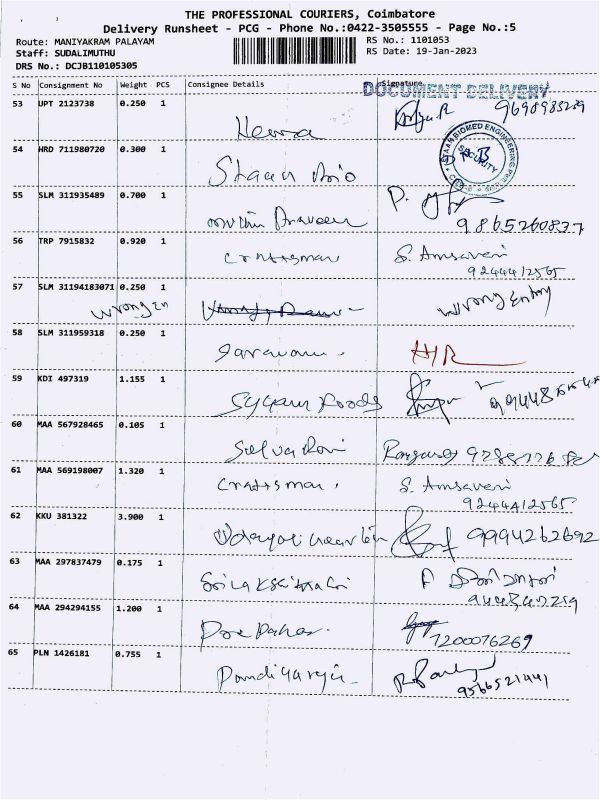 THE PROFESSIONAL COURIERS, Coimbatore
Delivery Runsheet - PCG - Phone No.:0422-3505555 - Page No.:5
Route: MANIYAKRAM PALAYAM
RS No.: 1101053
Staff: SUDALIMUTHU
RS Date: 19-Jan-2023
DRS No.: DCJB110105305
S No Consignment No Weight PCS Consignee Details Signature
DOCUMENT DELIVERY
53 UPT 2123738 0.250 1
STAAN BIOMED ENGINEERING PVT
SECURITY
54 HRD 711980720 0.300 1
Staan Bio
55 SLM 311935489 0.700 1
Praveen
9865260837
56 TRP 7915832 0.920 1
craftsman S. Amsaveni
9244412565
57 SLM 31194183071 0.250 1
wrong en wrong Entry
58 SLM 311959318 0.250 1
Saravanan HR
59 KDI 497319 1.155 1
Foods
60 MAA 567928465 0.105 1
Selva
61 MAA 569198007 1.320 1
craftsman S. Amsaveni
9244412565
62 KKU 381322 3.900 1
9994262692
63 MAA 297837479 0.175 1
64 MAA 294294155 1.200 1
7200076269
65 PLN 1426181 0.755 1
Pandiyaraju
9566521441